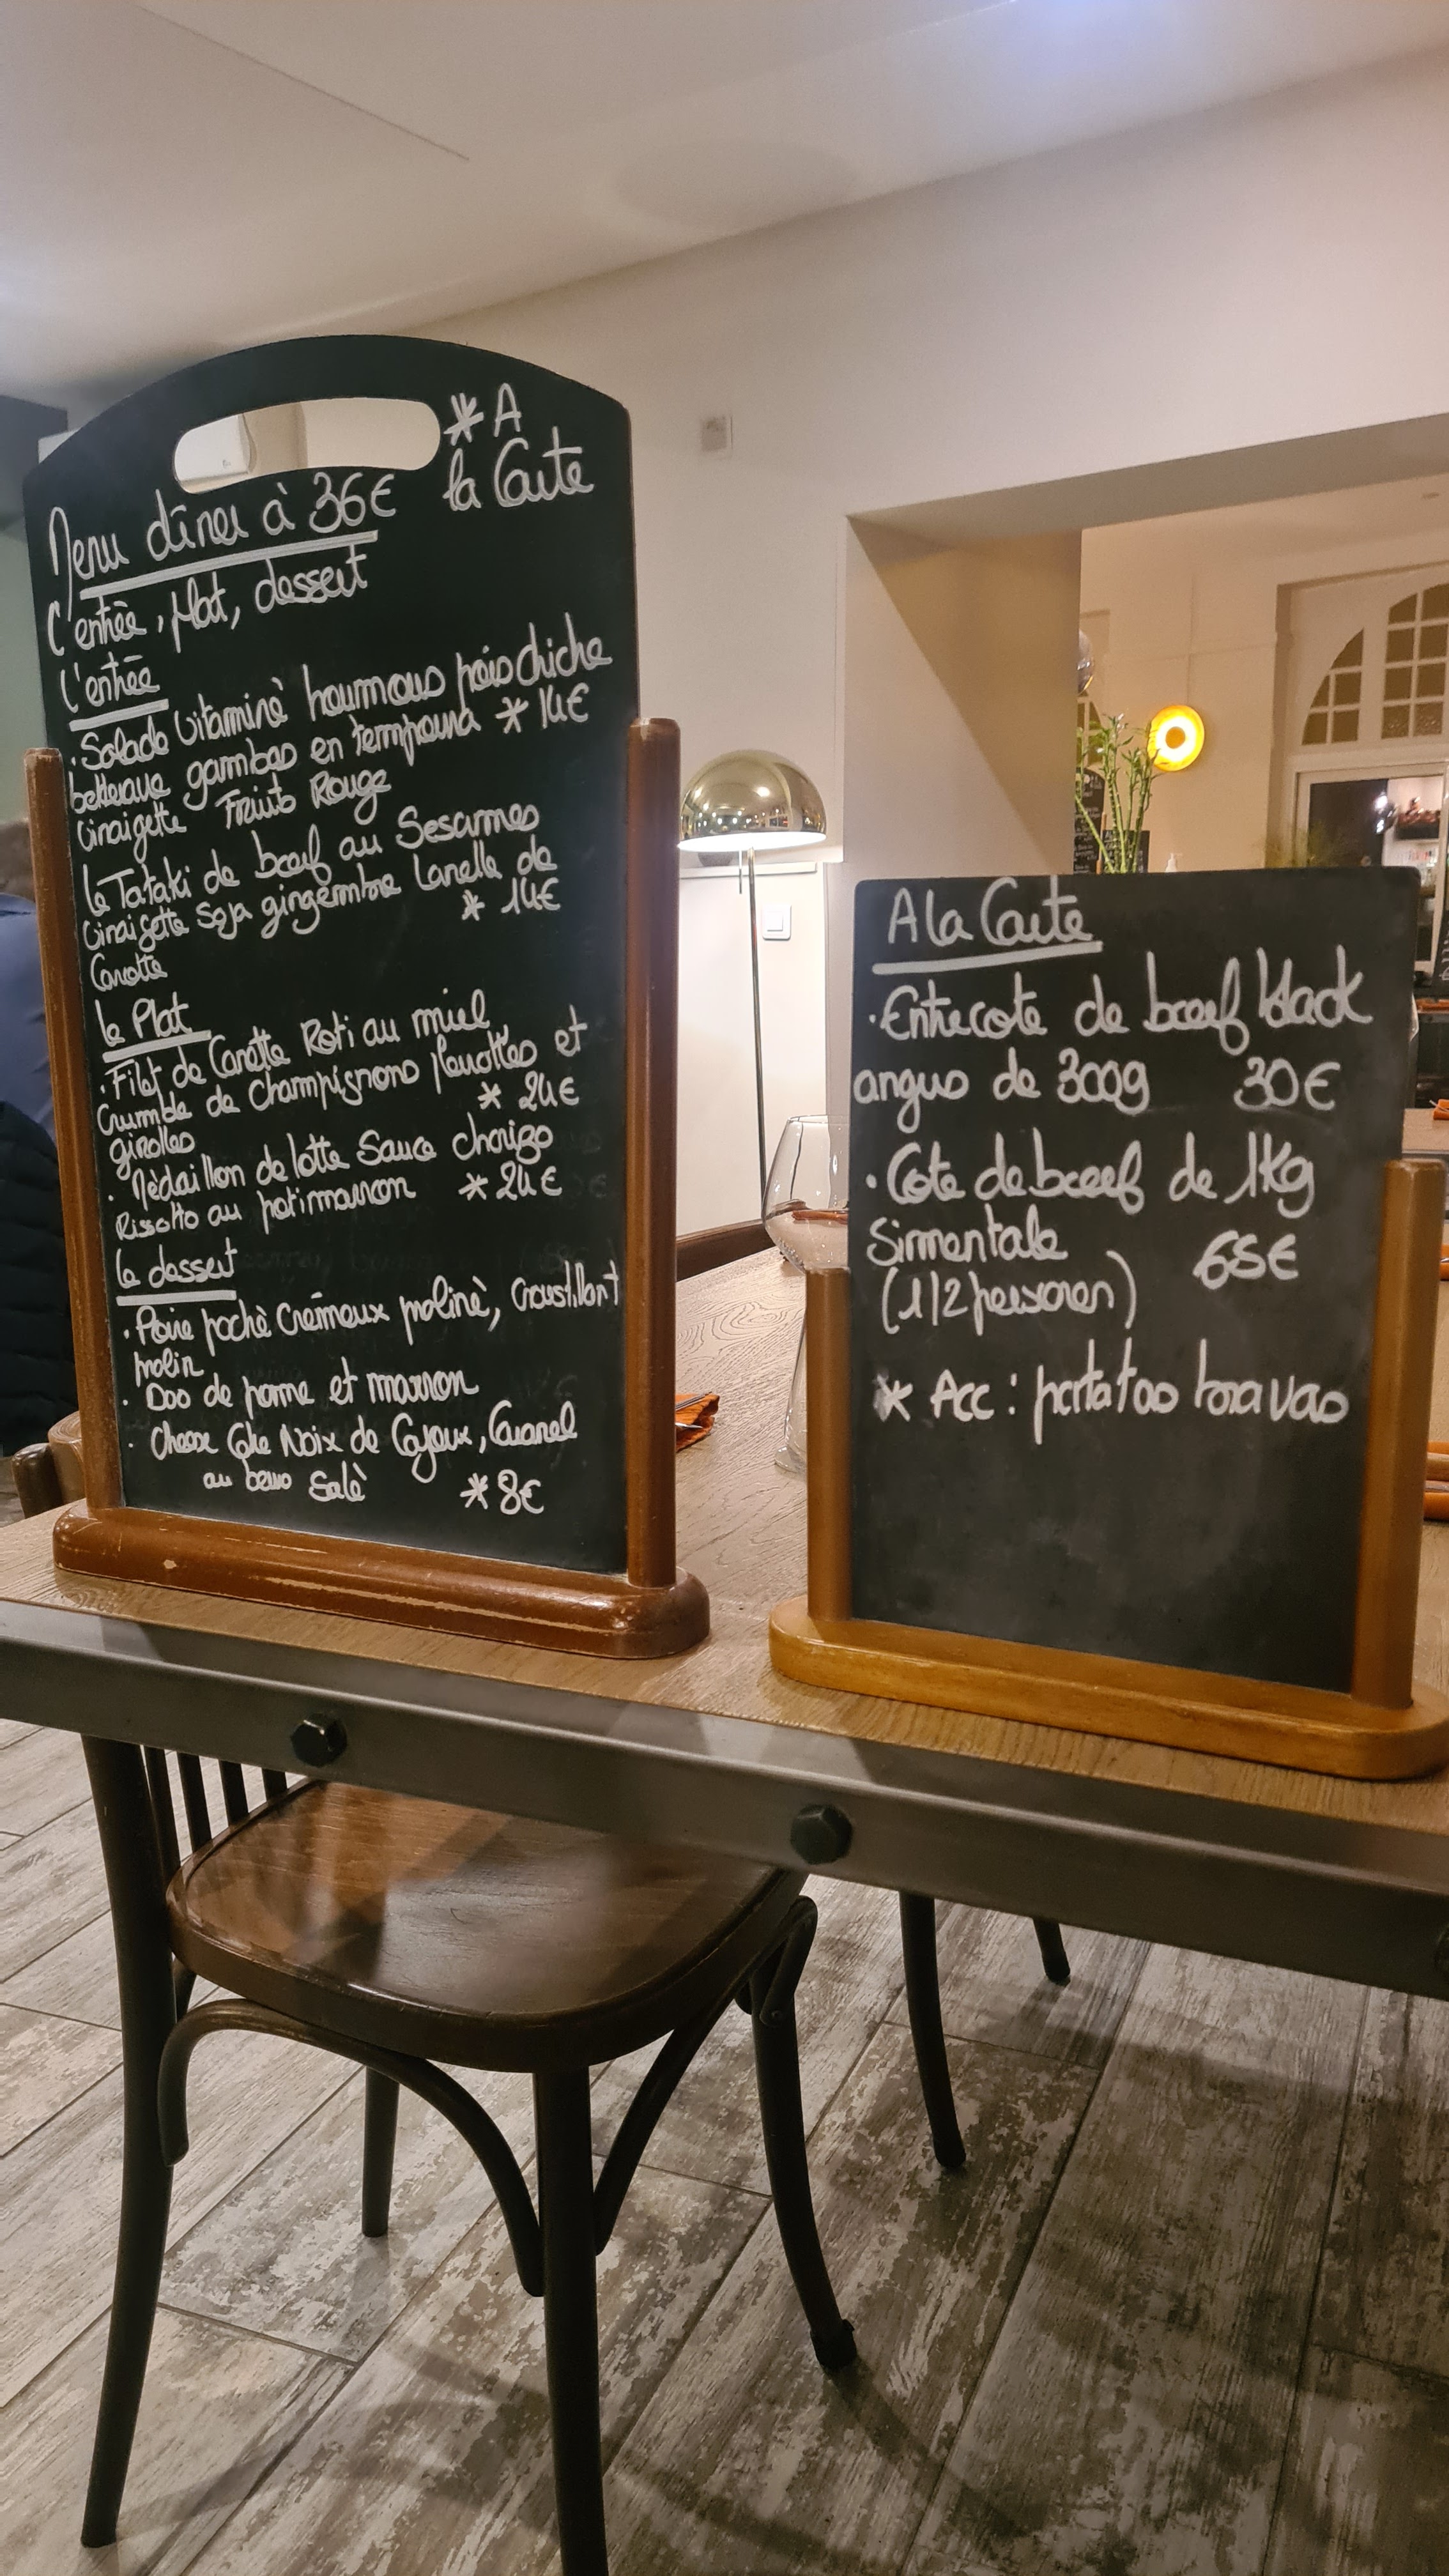 * A
la Carte
Menu dîner à 36€
L'entrée, plat, dessert
L'entrée
· Salade vitaminé houmous pois chiche
betterave gambas en tempura * 14€
vinaigette Fruits Rouge
le Tataki de bœuf au Sesames
vinaigette Soja gingembre Lanelle de
* 14€
Carotte
le Plat
· Filet de Canette Roti au miel
Crumble de champignons pleurottes et
girolles * 24€
· Médaillon de lotte Sauce chorizo
Rissotto au potimarron * 24€
le dessert
· Poire poché Crémeux praliné, Croustillant
pralin
· Duo de pome et marron
· Cheese Cake Noix de Cajoux, Caramel
au beure Salé * 8€
A la Carte
· Entrecote de bœuf black
angus de 300g 30€
· Cote de bœuf de 1kg
Simentale 65€
(1/2 personen)
* Acc : patatas bravas